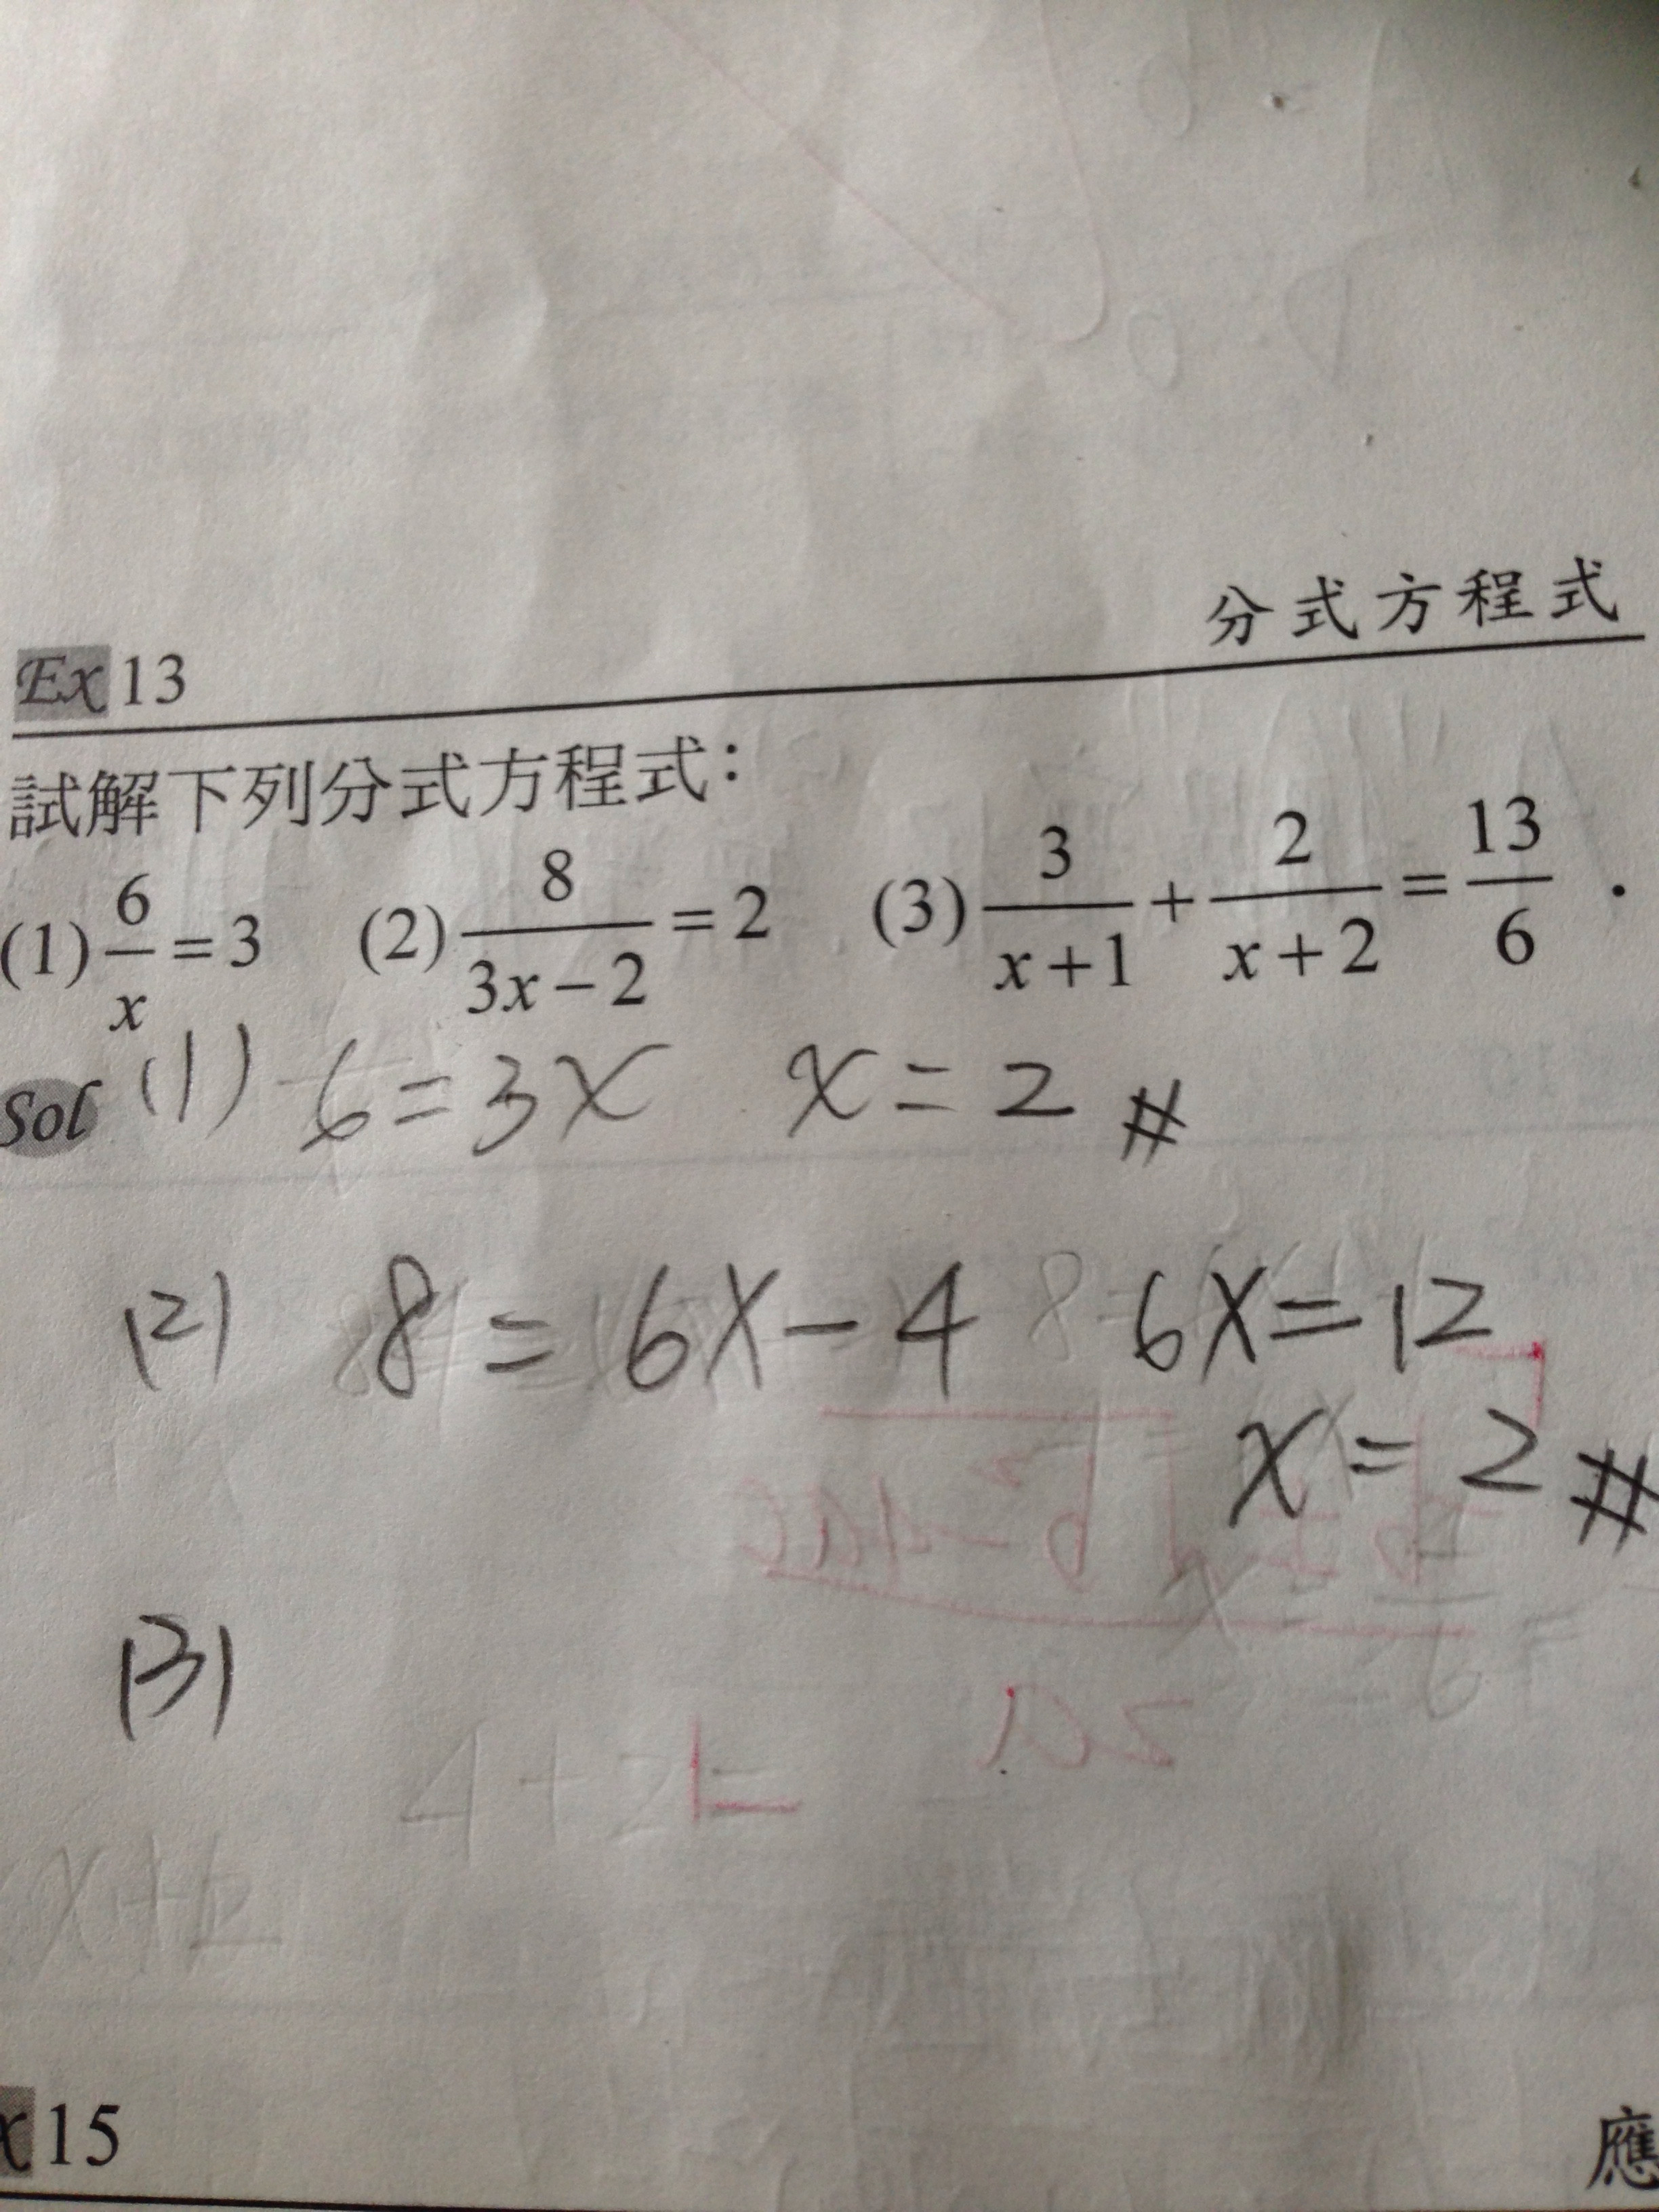 分式方程式
Ex 13
試解下列分式方程式：
(1) 6/x = 3 (2) 8/(3x-2) = 2 (3) 3/(x+1) + 2/(x+2) = 13/6 .
Sol (1) 6 = 3x x = 2 #
(2) 8 = 6x - 4 6x = 12
x = 2 #
(3)
x 15 應